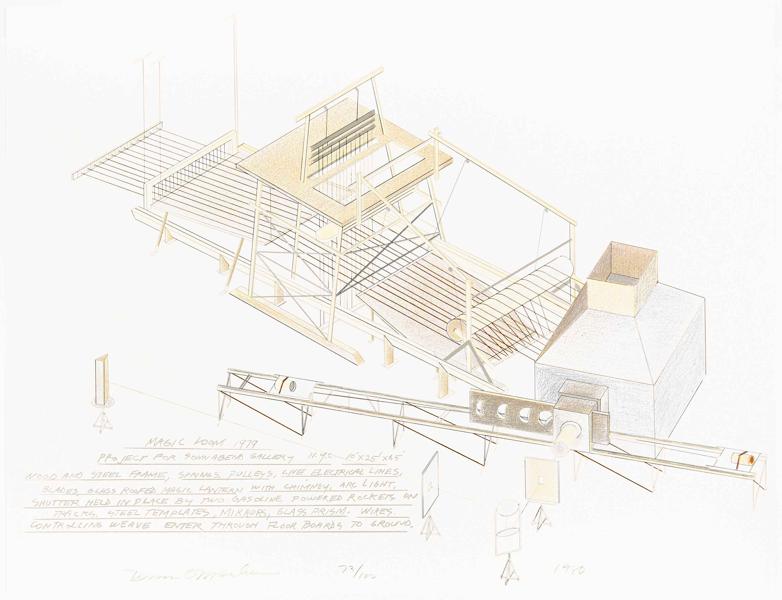 MAGIC LOOM 1979
PROJECT FOR SONNABEND GALLERY N.Y.C. 15'X25'X65
WOOD AND STEEL FRAME, SPRINGS, PULLEYS, LIVE ELECTRICAL LINES,
BLADES, GLASS ROOFED MAGIC LANTERN WITH CHIMNEY, ARC LIGHT,
SHUTTER HELD IN PLACE BY TWO GASOLINE POWERED ROCKETS ON
TRACKS. STEEL TEMPLATES, MIRRORS, GLASS PRISM. WIRES
CONTROLLING WEAVE ENTER THROUGH FLOOR BOARDS TO GROUND.
/100 1980